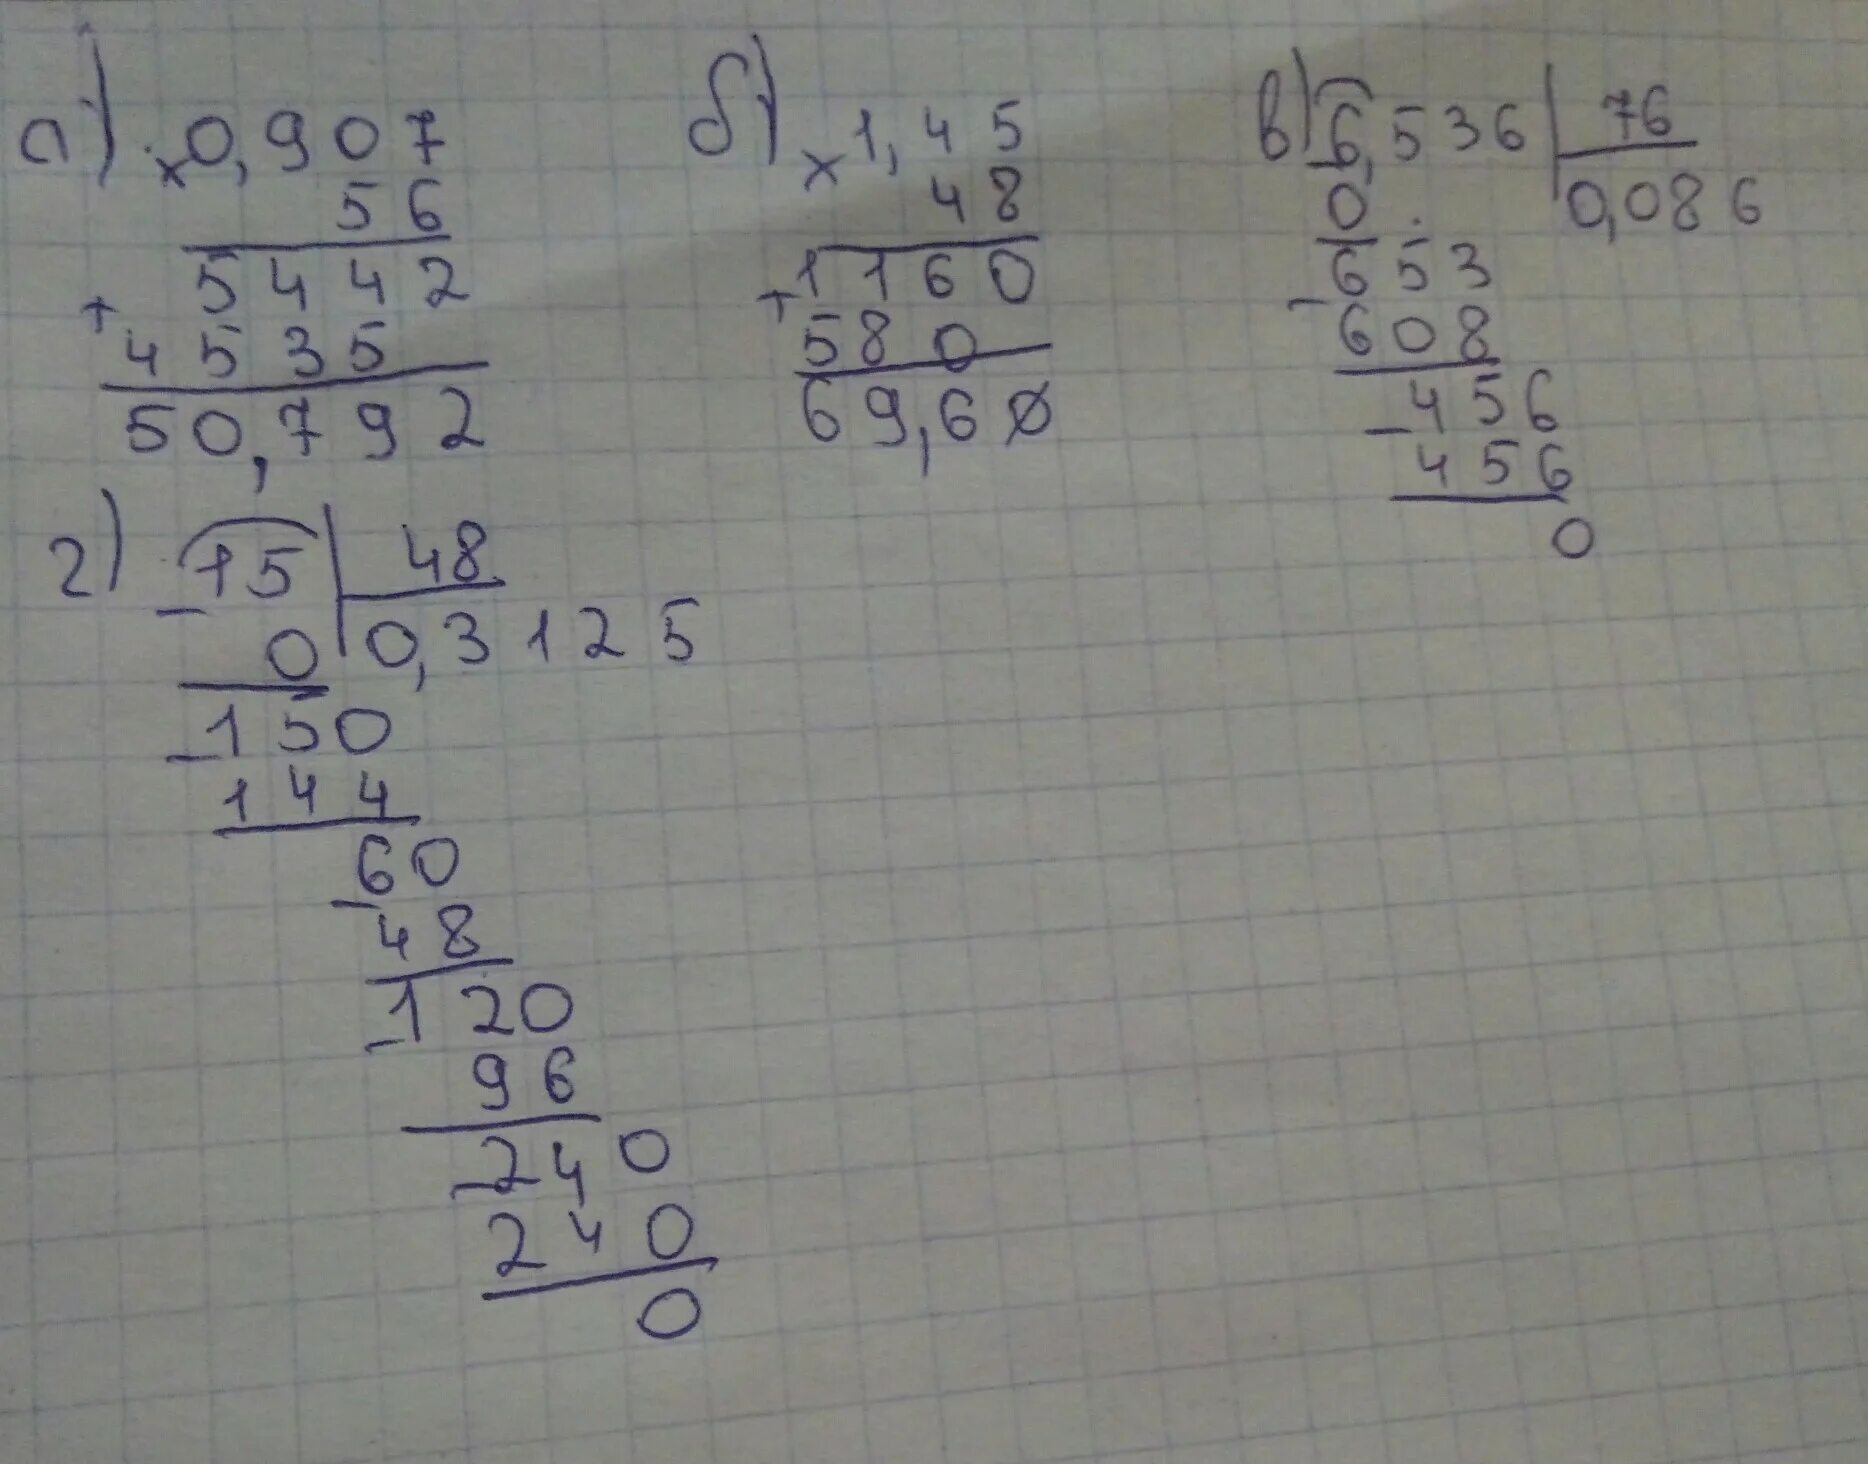 а) × 0,907
56
5442
+
4535
50,792
б) × 1,45
48
1160
+
580
69,60
в) 6,536 | 76
0 | 0,086
653
− 608
456
− 456
0
г) − 15 | 48
0 | 0,3125
− 150
144
− 60
48
− 120
96
− 240
240
0